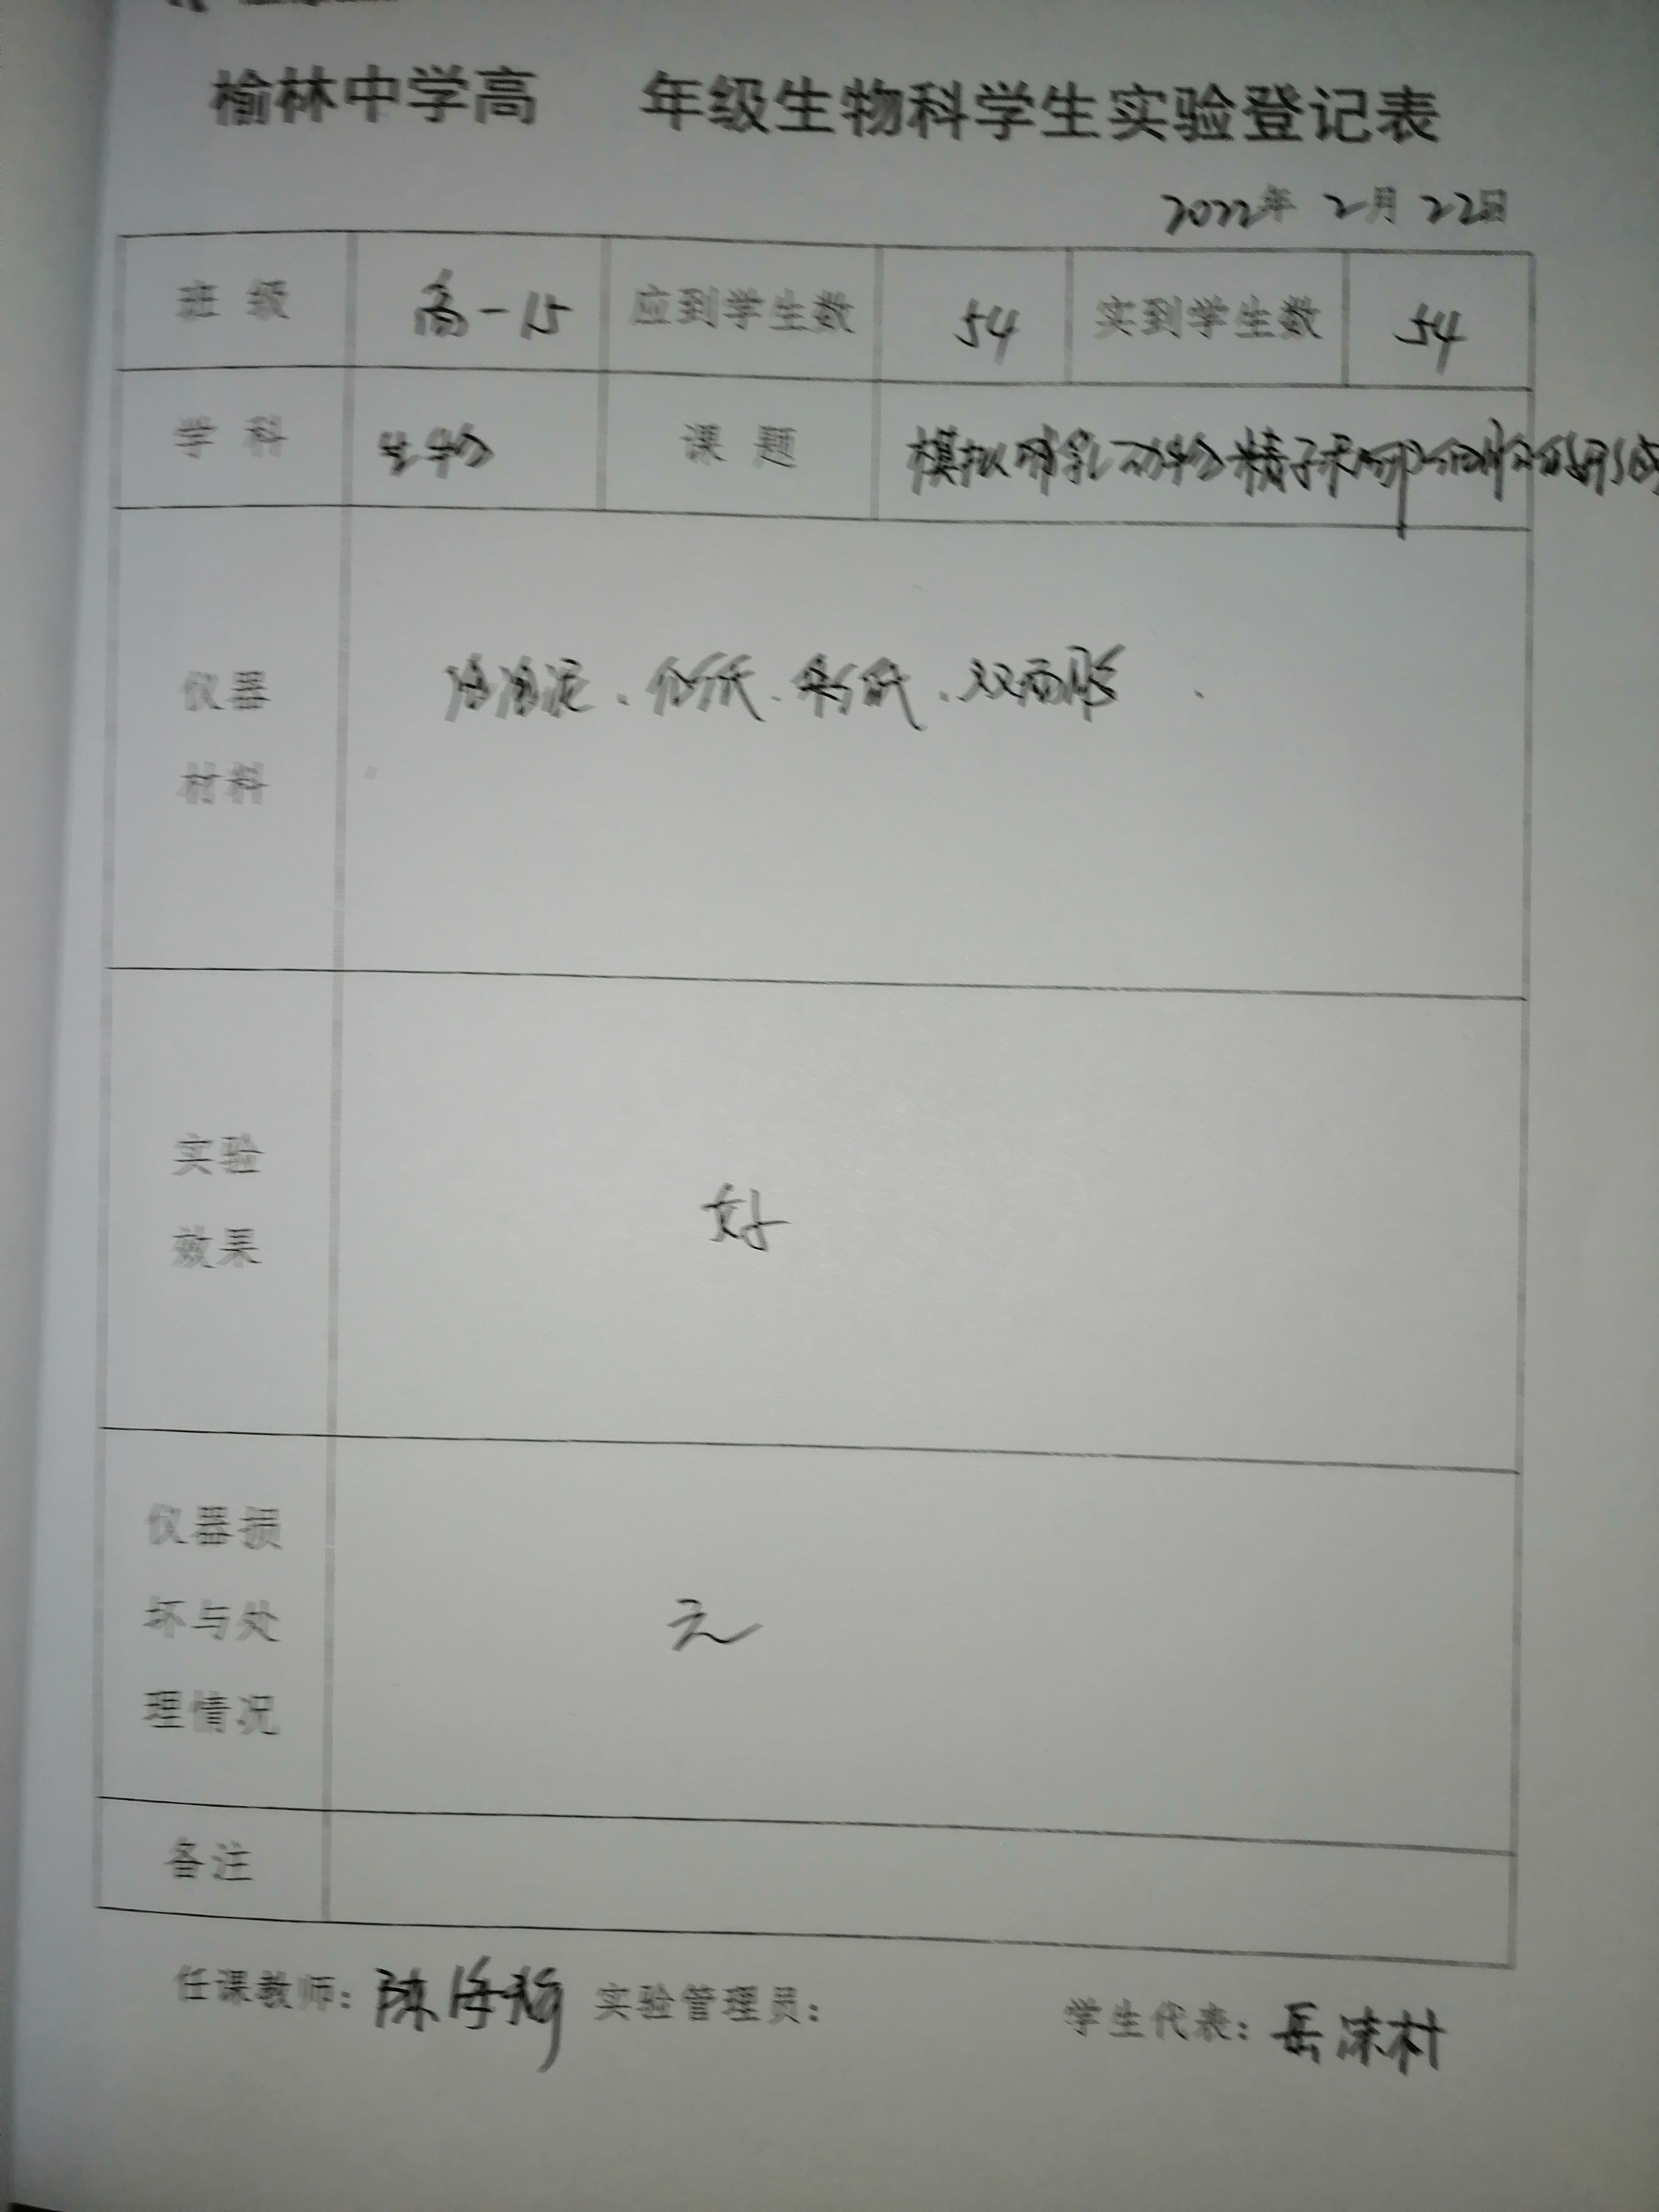 榆林中学高 年级生物科学生实验登记表
2022年 2月 22日
班级 高一15 应到学生数 54 实到学生数 54
学科 生物 课题 模拟哺乳动物精子和卵细胞的形成
仪器
材料
泡泡泥、白纸、彩纸、双面胶
实验
效果
好
仪器损
坏与处
理情况
无
备注
任课教师：陈 实验管理员： 学生代表：岳沫村